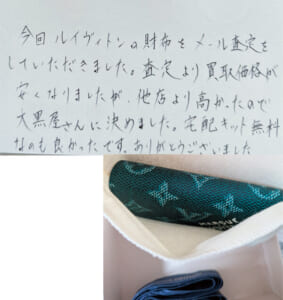 今回ルイヴィトンの財布をメール査定を
していただきました。査定より買取価格が
安くなりましたが、他店より高かったので
大黒屋さんに決めました。宅配キット無料
なのも良かったです。ありがとうございました